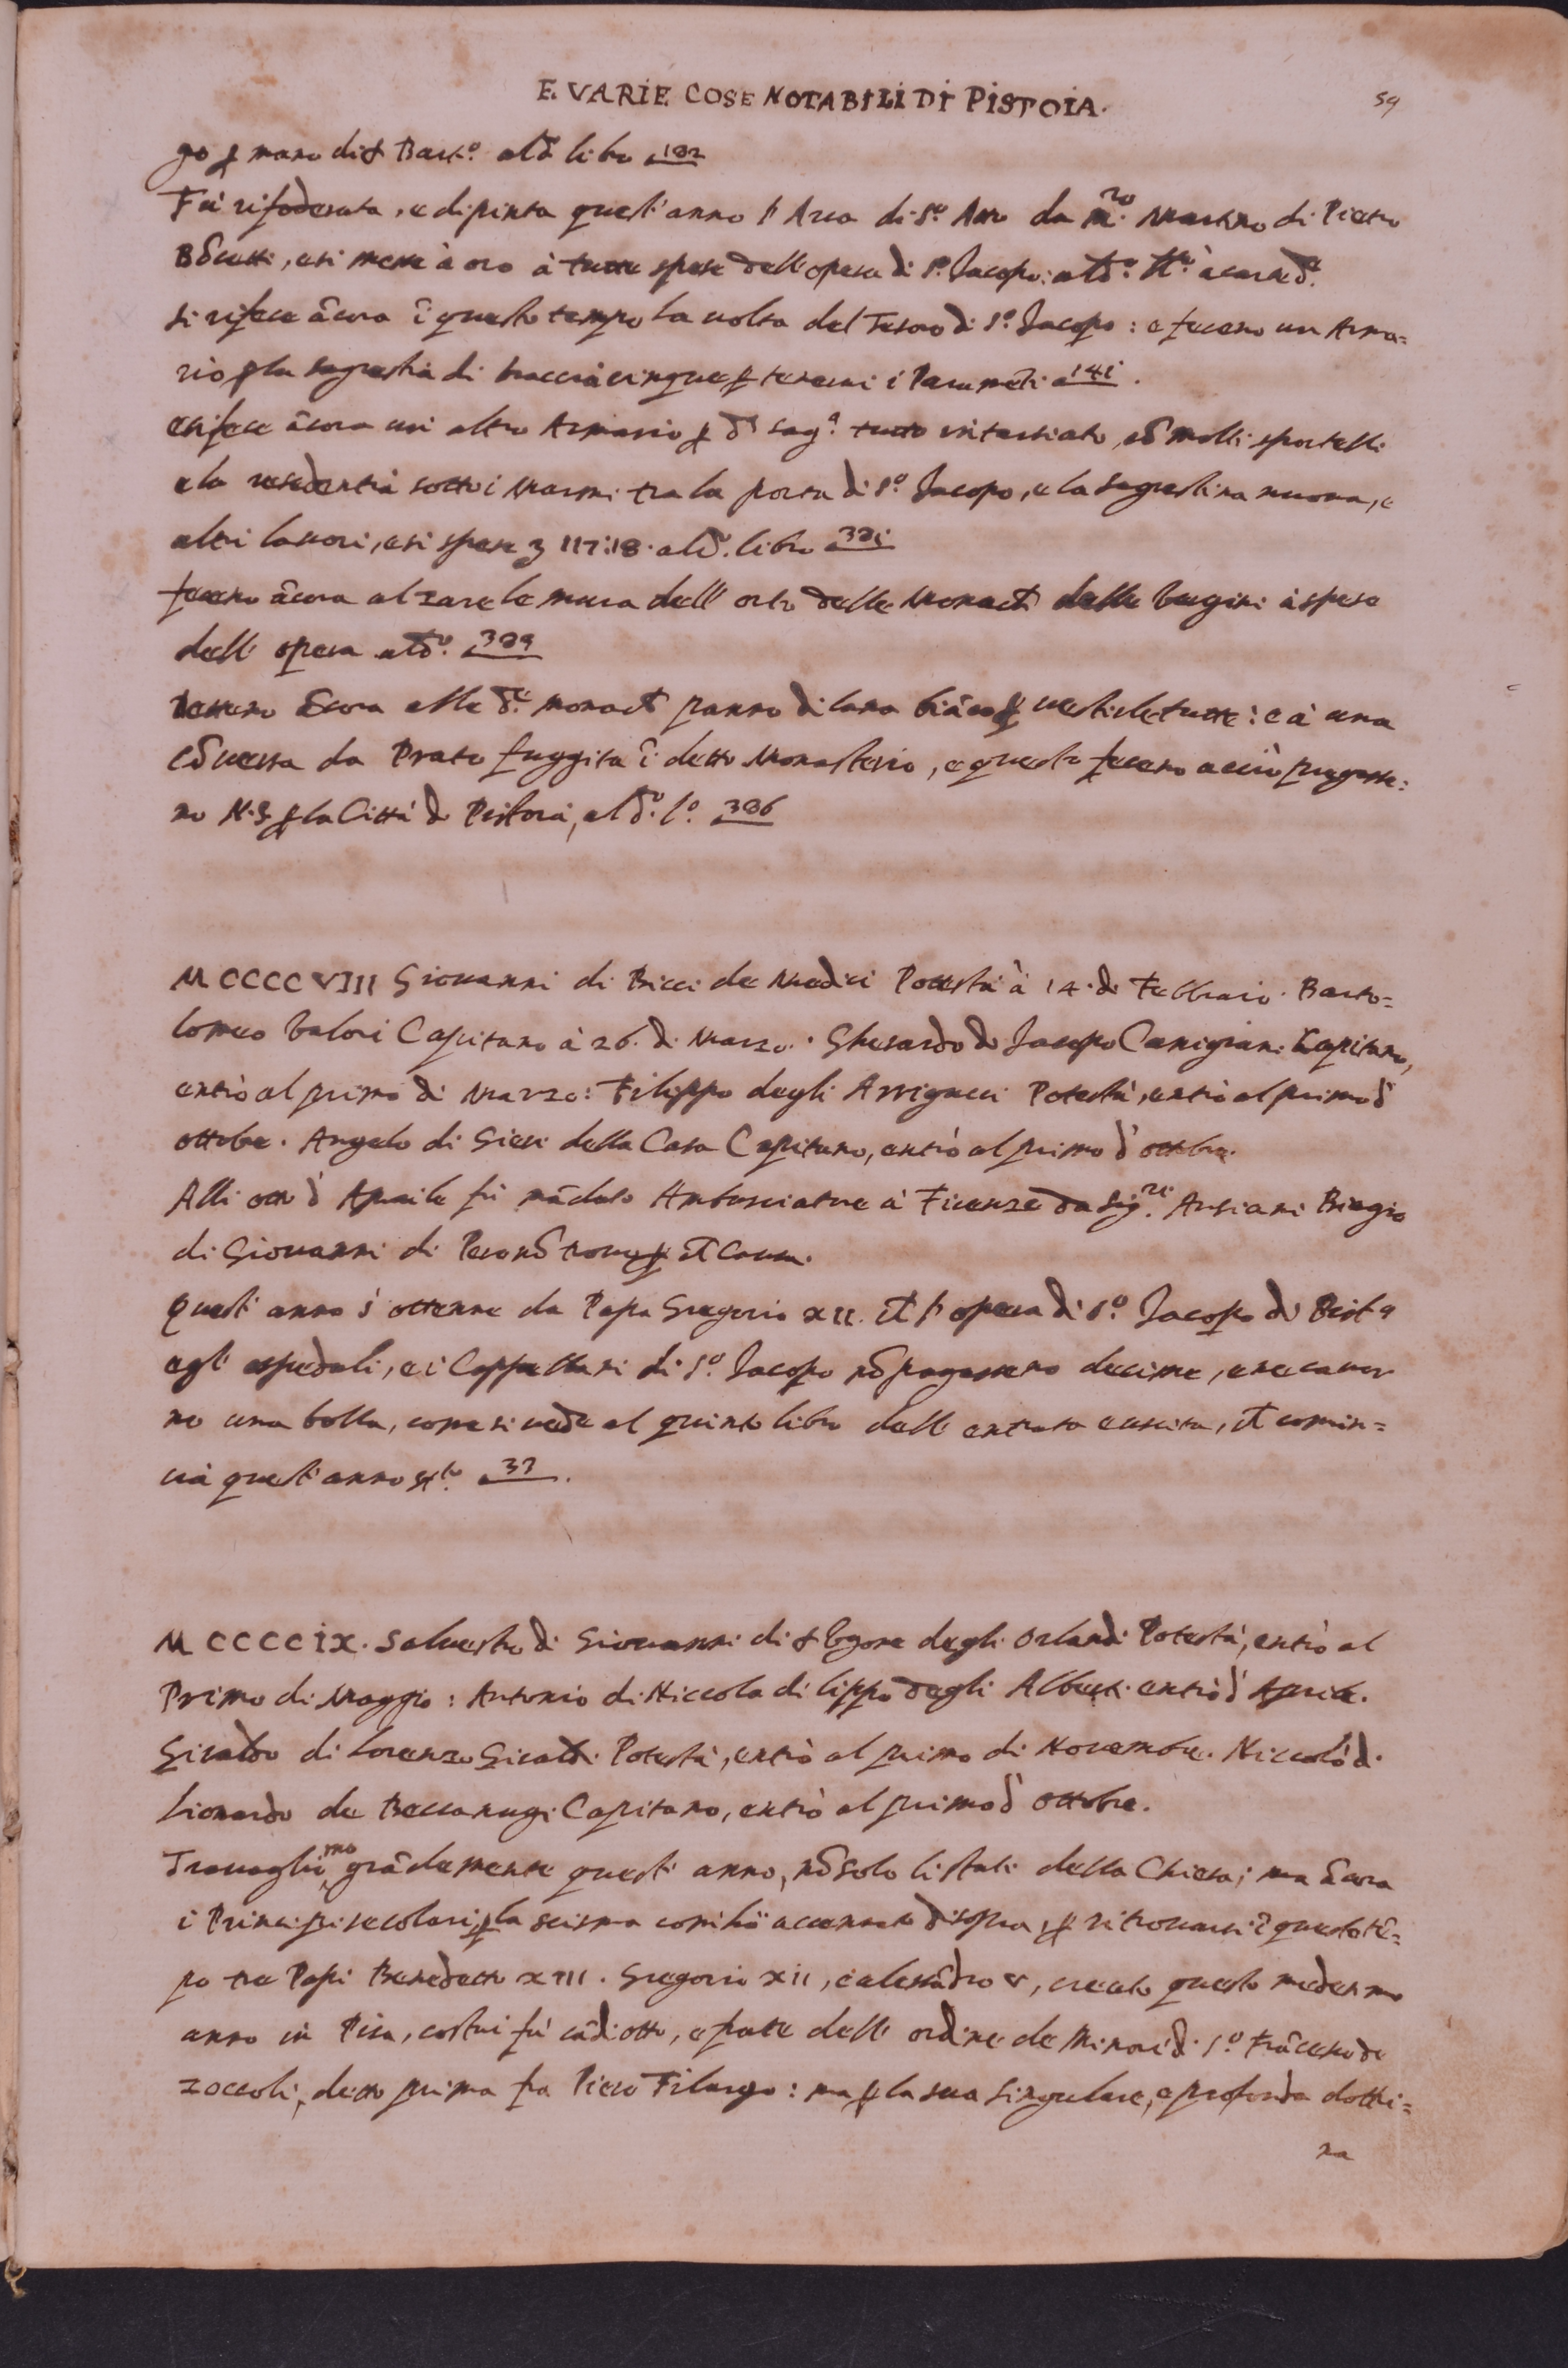 E VARIE COSE NOTABILI DI PISTOIA. 59
go ꝑ mano di s Bart.º al d.º libro a 182
Fù rifoderata, e dipinta quest'anno l'Arca di S.º Atto da m.ro Martino di Pietro
e si messe à oro à tutte spese dell'opera di S.º Jacopo: al d.º
si rifece ācora ī questo tempo la volta del Tesoro di S.º Jacopo: e feceno un Arma=
rio ꝑ la sagrestia di braccia cinque ꝑ tenerui i Paramēti a 141.
e si fece ācora un altro Armario ꝑ d.ª sag.ª tutto intarsiato, cō molti sportelli
e la residentia sotto i Marmi tra la porta di S.º Jacopo, e la sagrestina nuoua, e
altri lauori, e si spese 117:18. al d.º libro
feceno ācora alzare le mura dell'orto delle Monach delle bugini à spese
dell'opera al d.º
Dettero ācora alle d.e monach panno di lana biāco ꝑ uestirle tutte: e à una
cōuersa da Prato fuggita ī detto Monasterio, e questo feceno acciò pregasse=
no N.S. ꝑ la Città di Pistoia, al d.º l.º a 386
MCCCCVIII Giouanni di Bicci de Medici Potestà à 14. di Febbraio. Barto=
lomeo Valori Capitano à 26. di Marzo. Gherardo di Jacopo Canigiani Capitano,
entrò al primo di Marzo: Filippo degli Arrigucci Potestà, entrò al primo d'
ottobre. Angelo di Gieri della Casa Capitano, entrò al primo d'ottobre.
Alli otto d'Aprile fù mādato Ambasciatore à Firenze da Sig.ri Anziani Biagio
di Giouanni di
Quest'anno s'ottenne da Papa Gregorio XII. ch l'opera di S.º Jacopo di Pist.ª
e gl'ospedali, e i Cappellani di S.º Jacopo nō pagasseno decime, e ne cauor
no una bolla, come si uede al quinto libro dell'entrata e uscita, ch comin=
cia quest'anno a 37.
MCCCCIX. Saluestro di Giouanni di s degli Orlandi Potestà, entrò al
Primo di Maggio: Antonio di Niccola di lippo degli Alberti entrò d'Aprile.
Giraldo di Lorenzo Giraldi Potestà, entrò al primo di Nouembre. Niccolò di
Lionardo de Beccanugi Capitano, entrò al primo d'ottobre.
Trauagliomo grādemente quest'anno, nō solo li stati della Chiesa; ma ācora
i Principi secolari, ꝑ la scisma accennato di sopra, ꝑ ritrouarsi ī questo tē=
po tre Papi Benedetto XIII. Gregorio XII, e alessādro V, creato questo medesmo
anno in Pisa, costui fù cādiotto, e frate dell'ordine de Minori di S.º Frācesco de
zoccoli, detto prima fra Piero Filargo: ma ꝑ la sua singulare, e profonda dottri=
na